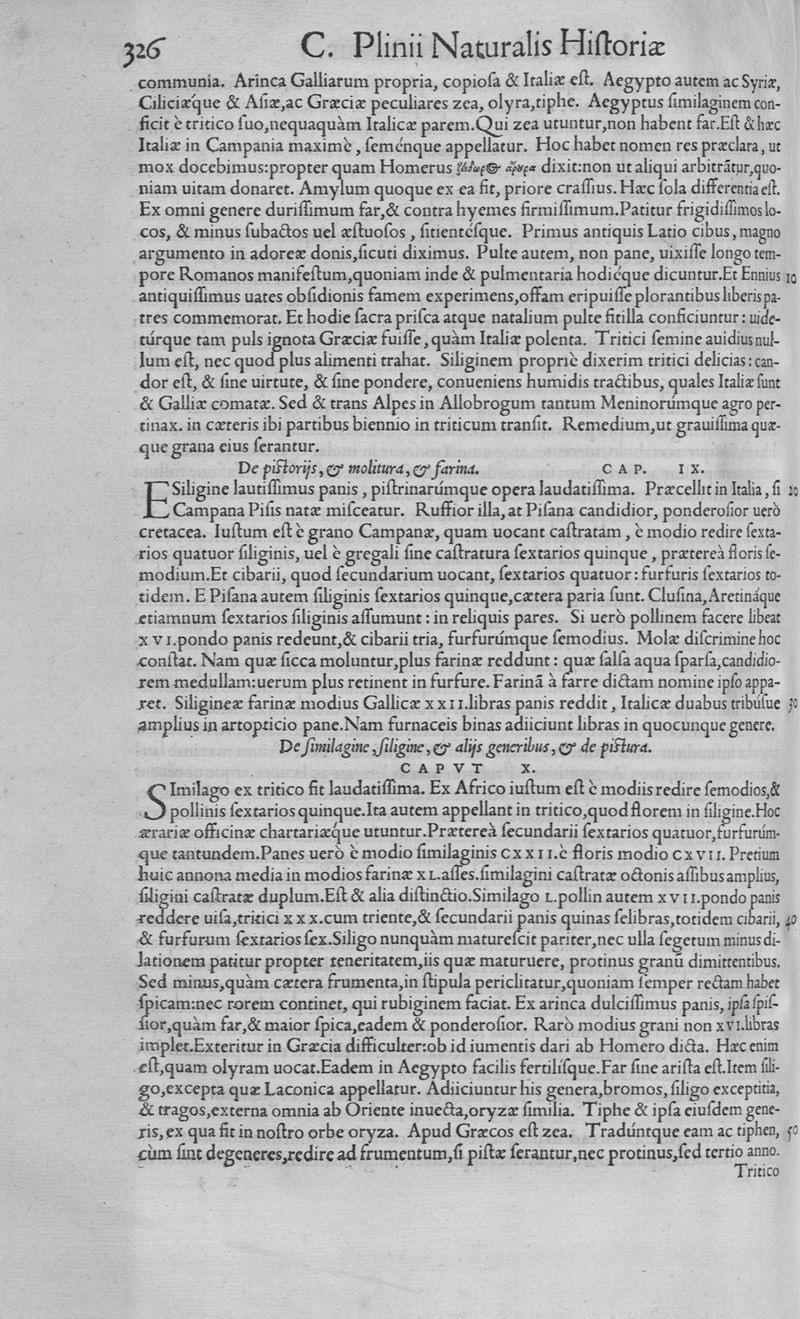 326 C. Plinii Naturalis Hiſtoriæ
communia. Arinca Galliarum propria, copioſa & Italiæ eſt. Aegypto autem ac Syriæ,
Ciliciæque & Aſiæ,ac Græciæ peculiares zea, olyra,tiphe. Aegyptus ſimilaginem con-
ficit è tritico ſuo,nequaquàm Italicæ parem.Qui zea utuntur,non habent far.Eſt & hæc
Italiæ in Campania maximè, ſeménque appellatur. Hoc habet nomen res præclara, ut
mox docebimus:propter quam Homerus ζείδωρος ἄρουρα dixit:non ut aliqui arbitrãtur,quo-
niam uitam donaret. Amylum quoque ex ea fit, priore craſſius. Hæc ſola differentia eſt.
Ex omni genere duriſſimum far,& contra hyemes firmiſſimum.Patitur frigidiſſimos lo-
cos, & minus ſubactos uel æſtuoſos, ſitientéſque. Primus antiquis Latio cibus, magno
argumento in adoreæ donis,ſicuti diximus. Pulte autem, non pane, uixiſſe longo tem-
pore Romanos manifeſtum,quoniam inde & pulmentaria hodiéque dicuntur.Et Ennius 10
antiquiſſimus uates obſidionis famem experimens,offam eripuiſſe plorantibus liberis pa-
tres commemorat. Et hodie ſacra priſca atque natalium pulte fitilla conficiuntur: uide-
túrque tam puls ignota Græciæ fuiſſe, quàm Italiæ polenta. Tritici ſemine auidius nul-
lum eſt, nec quod plus alimenti trahat. Siliginem propriè dixerim tritici delicias: can-
dor eſt, & ſine uirtute, & ſine pondere, conueniens humidis tractibus, quales Italiæ ſunt
& Galliæ comatæ. Sed & trans Alpes in Allobrogum tantum Meninorúmque agro per-
tinax. in cæteris ibi partibus biennio in triticum tranſit. Remedium,ut grauiſſima quæ-
que grana eius ſerantur.
De piſtorijs, & molitura, & farina. CAP. IX.
E Siligine lautiſſimus panis, piſtrinarúmque opera laudatiſſima. Præcellit in Italia, ſi 20
Campana Piſis natæ miſceatur. Ruffior illa, at Piſana candidior, ponderoſior uerò
cretacea. Iuſtum eſt è grano Campanæ, quam uocant caſtratam, è modio redire ſexta-
rios quatuor ſiliginis, uel è gregali ſine caſtratura ſextarios quinque, prætereà floris ſe-
modium.Et cibarii, quod ſecundarium uocant, ſextarios quatuor: furfuris ſextarios to-
tidem. E Piſana autem ſiliginis ſextarios quinque,cætera paria ſunt. Cluſina,Aretináque
etiamnum ſextarios ſiliginis aſſumunt: in reliquis pares. Si uerò pollinem facere libeat
XVI.pondo panis redeunt,& cibarii tria, furfurúmque ſemodius. Molæ diſcrimine hoc
conſtat. Nam quæ ſicca moluntur,plus farinæ reddunt: quæ ſalſa aqua ſparſa,candidio-
rem medullam:uerum plus retinent in furfure. Farinã à farre dictam nomine ipſo appa-
ret. Siligineæ farinæ modius Gallicæ XXII.libras panis reddit, Italicæ duabus tribúſue 30
amplius in artopticio pane.Nam furnaceis binas adiiciunt libras in quocunque genere.
De ſimilagine, ſiligine, & alijs generibus, & de piſtura.
CAPVT X.
SImilago ex tritico fit laudatiſſima. Ex Africo iuſtum eſt è modiis redire ſemodios,&
pollinis ſextarios quinque.Ita autem appellant in tritico,quod florem in ſiligine.Hoc
ærariæ officinæ chartariæque utuntur.Prætereà ſecundarii ſextarios quatuor,furfurúm-
que tantundem.Panes uerò è modio ſimilaginis CXXII.è floris modio CXVII. Pretium
huic annona media in modios farinæ XL.aſſes.ſimilagini caſtratæ octonis aſſibus amplius,
ſiligini caſtratæ duplum.Eſt & alia diſtinctio.Similago L.pollin autem XVII.pondo panis
reddere uiſa,tritici XXX.cum triente,& ſecundarii panis quinas ſelibras,totidem cibarii, 40
& furfurum ſextarios ſex.Siligo nunquàm matureſcit pariter,nec ulla ſegetum minus di-
lationem patitur propter teneritatem,iis quæ maturuere, protinus granũ dimittentibus.
Sed minus,quàm cætera frumenta,in ſtipula periclitatur,quoniam ſemper rectam habet
ſpicam:nec rorem continet, qui rubiginem faciat. Ex arinca dulciſſimus panis, ipſa ſpiſ-
ſior,quàm far,& maior ſpica,eadem & ponderoſior. Rarò modius grani non XVI.libras
implet.Exteritur in Græcia difficulter:ob id iumentis dari ab Homero dicta. Hæc enim
eſt,quam olyram uocat.Eadem in Aegypto facilis fertiliſque.Far ſine ariſta eſt.Item ſili-
go,excepta quæ Laconica appellatur. Adiiciuntur his genera,bromos,ſiligo exceptitia,
& tragos,externa omnia ab Oriente inuecta,oryzæ ſimilia. Tiphe & ipſa eiuſdem gene-
ris,ex qua fit in noſtro orbe oryza. Apud Græcos eſt zea. Tradúntque eam ac tiphen, 50
cùm ſint degeneres,redire ad frumentum,ſi piſtæ ſerantur,nec protinus,ſed tertio anno.
Tritico